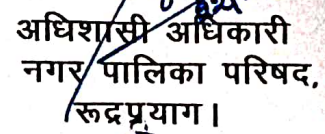 अधिशासी अधिकारी
नगर पालिका परिषद,
रूद्रप्रयाग।